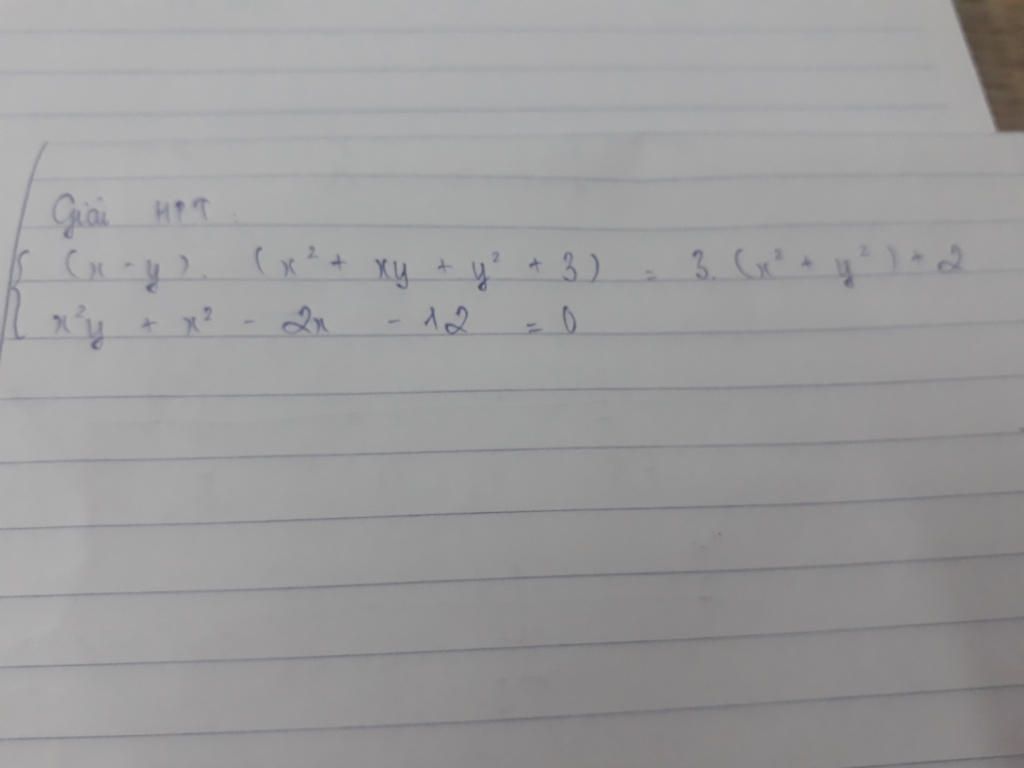 Giải HPT:
(x - y). (x² + xy + y² + 3) = 3. (x² + y²) + 2
x²y + x² - 2x - 12 = 0